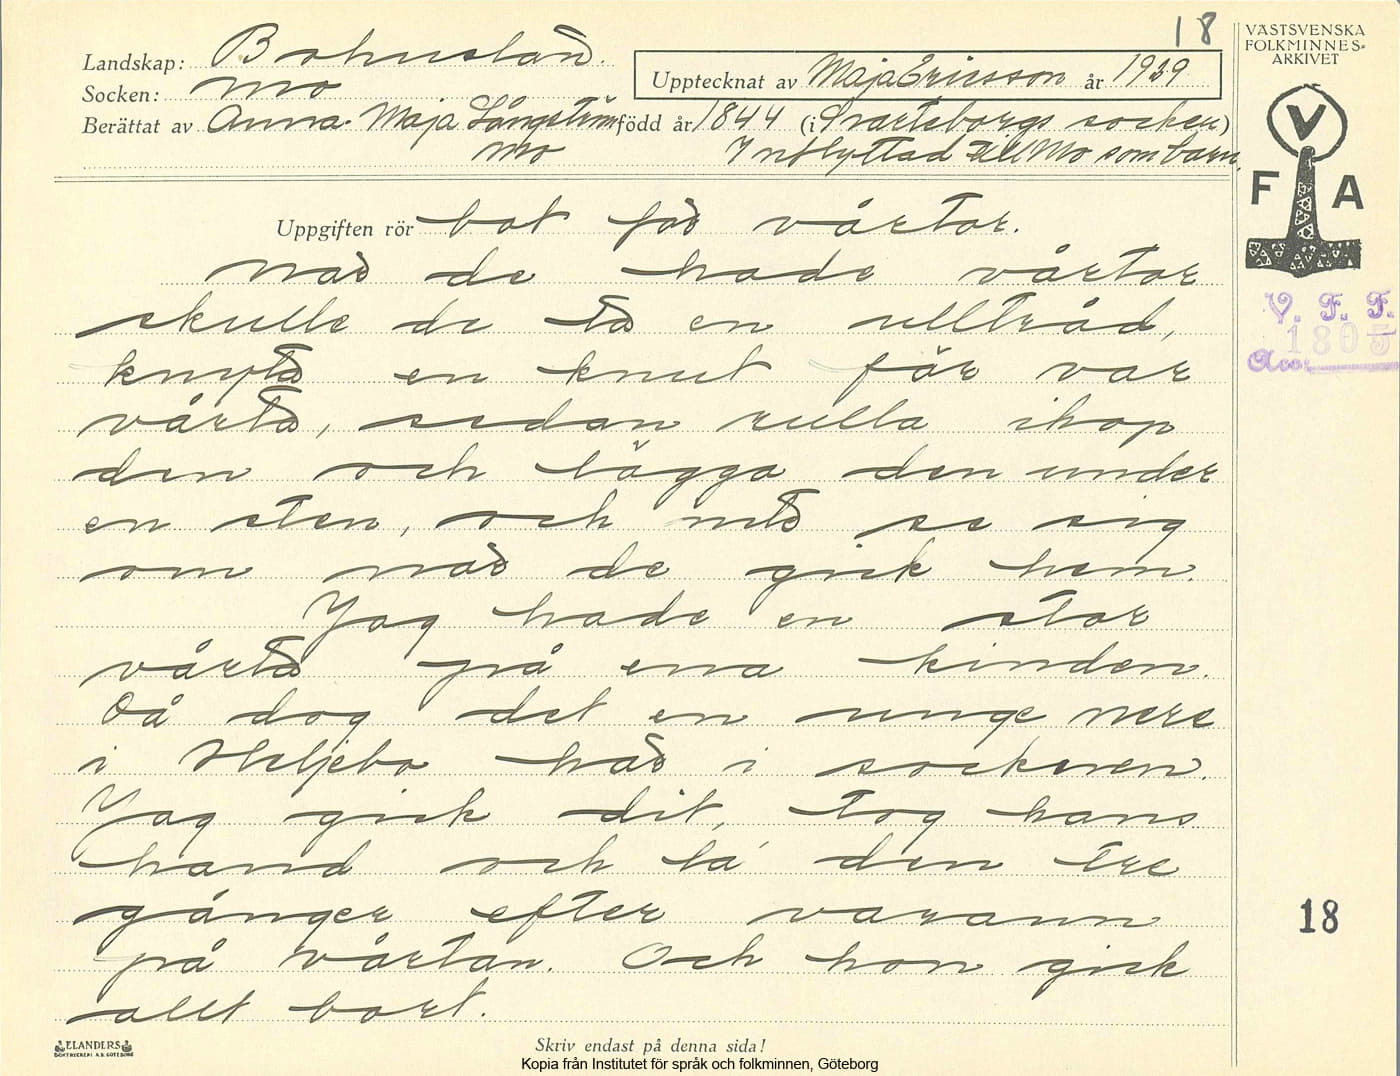 18
VÄSTSVENSKA
FOLKMINNES-
ARKIVET
Landskap: Bohuslän.
Socken: Mo
Upptecknat av Maja Ericsson år 1929
Berättat av Anna-Maja Långström född år 1844 (i Svarteborgs socken)
Mo Inflyttad till Mo som barn.
V
F A
Uppgiften rör bot för vårtor.
När de hade vårtor
skulle de ta en ulltråd,
knyta en knut för var
vårta, sedan rulla ihop
den och lägga den under
en sten, och inte se sig
om när de gick hem.
Jag hade en stor
vårta på ena kinden.
Då dog det en unge nere
i Heljebo här i socknen.
Jag gick dit, tog hans
hand och la' den tre
gånger efter varann
på vårtan. Och hon gick
allt bort.
V. F. F.
1805
Acc.
18
ELANDERS
BOKTRYCKERI A.B. GÖTEBORG
Skriv endast på denna sida!
Kopia från Institutet för språk och folkminnen, Göteborg